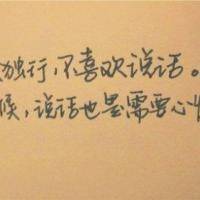 独行,不喜欢说话。
候,说话也是需要心情